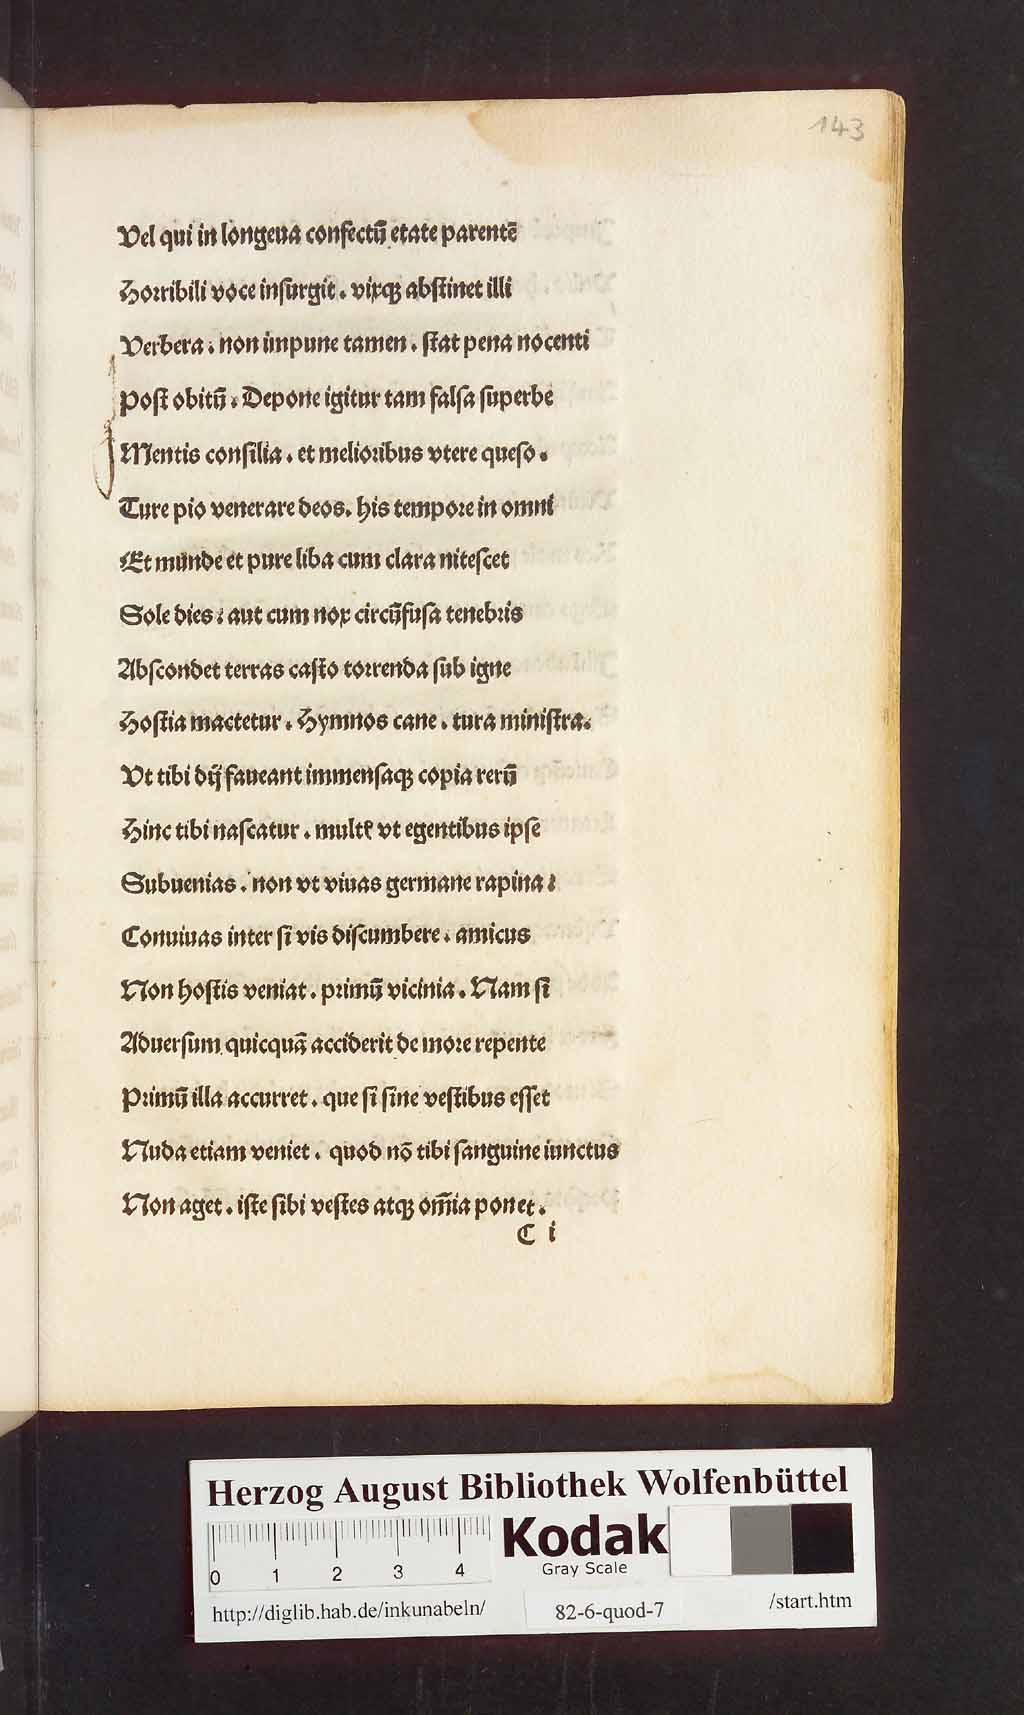 143
Vel qui in longeua confectū etate parentē
Horribili voce insurgit . vixqȝ abstinet illi
Verbera : non impune tamen . stat pena nocenti
Post obitū . Depone igitur tam falsa superbe
Mentis consilia . et melioribus vtere queso .
Ture pio venerare deos . his tempore in omni
Et munde et pure liba cum clara nitescet
Sole dies : aut cum nox circūfusa tenebris
Abscondet terras casto torrenda sub igne
Hostia mactetur . Hymnos cane . tura ministra .
Vt tibi dij faueant immensaqȝ copia rerū
Hinc tibi nascatur . multꝭ vt egentibus ipse
Subuenias . non vt viuas germane rapina :
Conuiuas inter si vis discumbere . amicus
Non hostis veniat . primū vicinia . Nam si
Aduersum quicquā acciderit de more repente
Primū illa accurret . que si sine vestibus esset
Nuda etiam veniet . quod nō tibi sanguine iunctus
Non aget . iste sibi vestes atqȝ om̄ia ponet .
C i
Herzog August Bibliothek Wolfenbüttel
0 1 2 3 4
Kodak
Gray Scale
http://diglib.hab.de/inkunabeln/ 82-6-quod-7 /start.htm